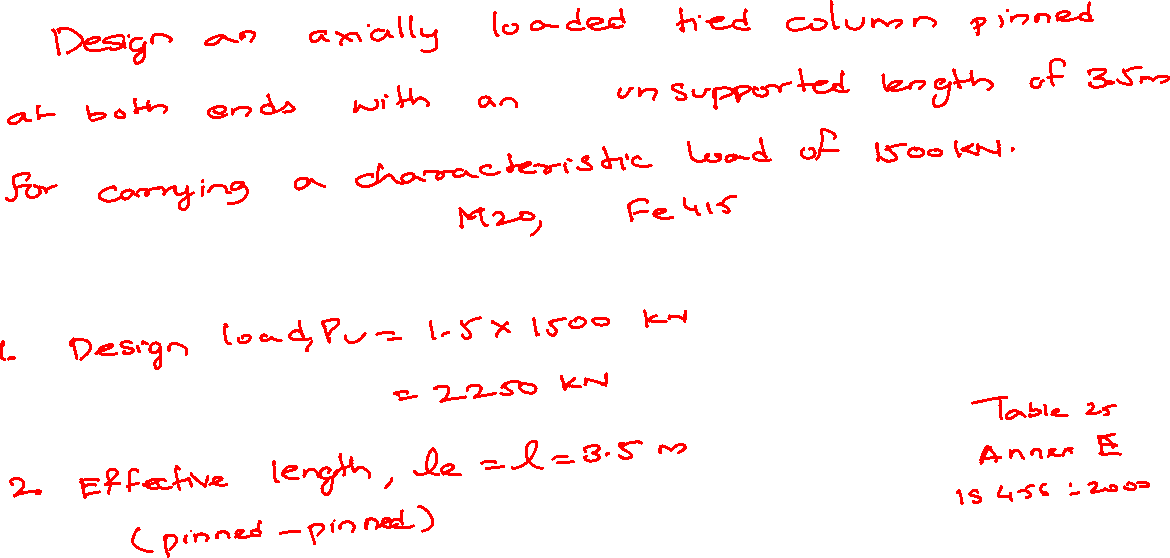 Design an axially loaded tied column pinned
at both ends with an unsupported length of 3.5m
for carrying a characteristic load of 1500 KN.
M20, Fe 415
1. Design load, Pu = 1.5 x 1500 KN
= 2250 KN
2. Effective length, le = l = 3.5 m
(pinned - pinned)
Table 25
Annex E
IS 456 : 2000